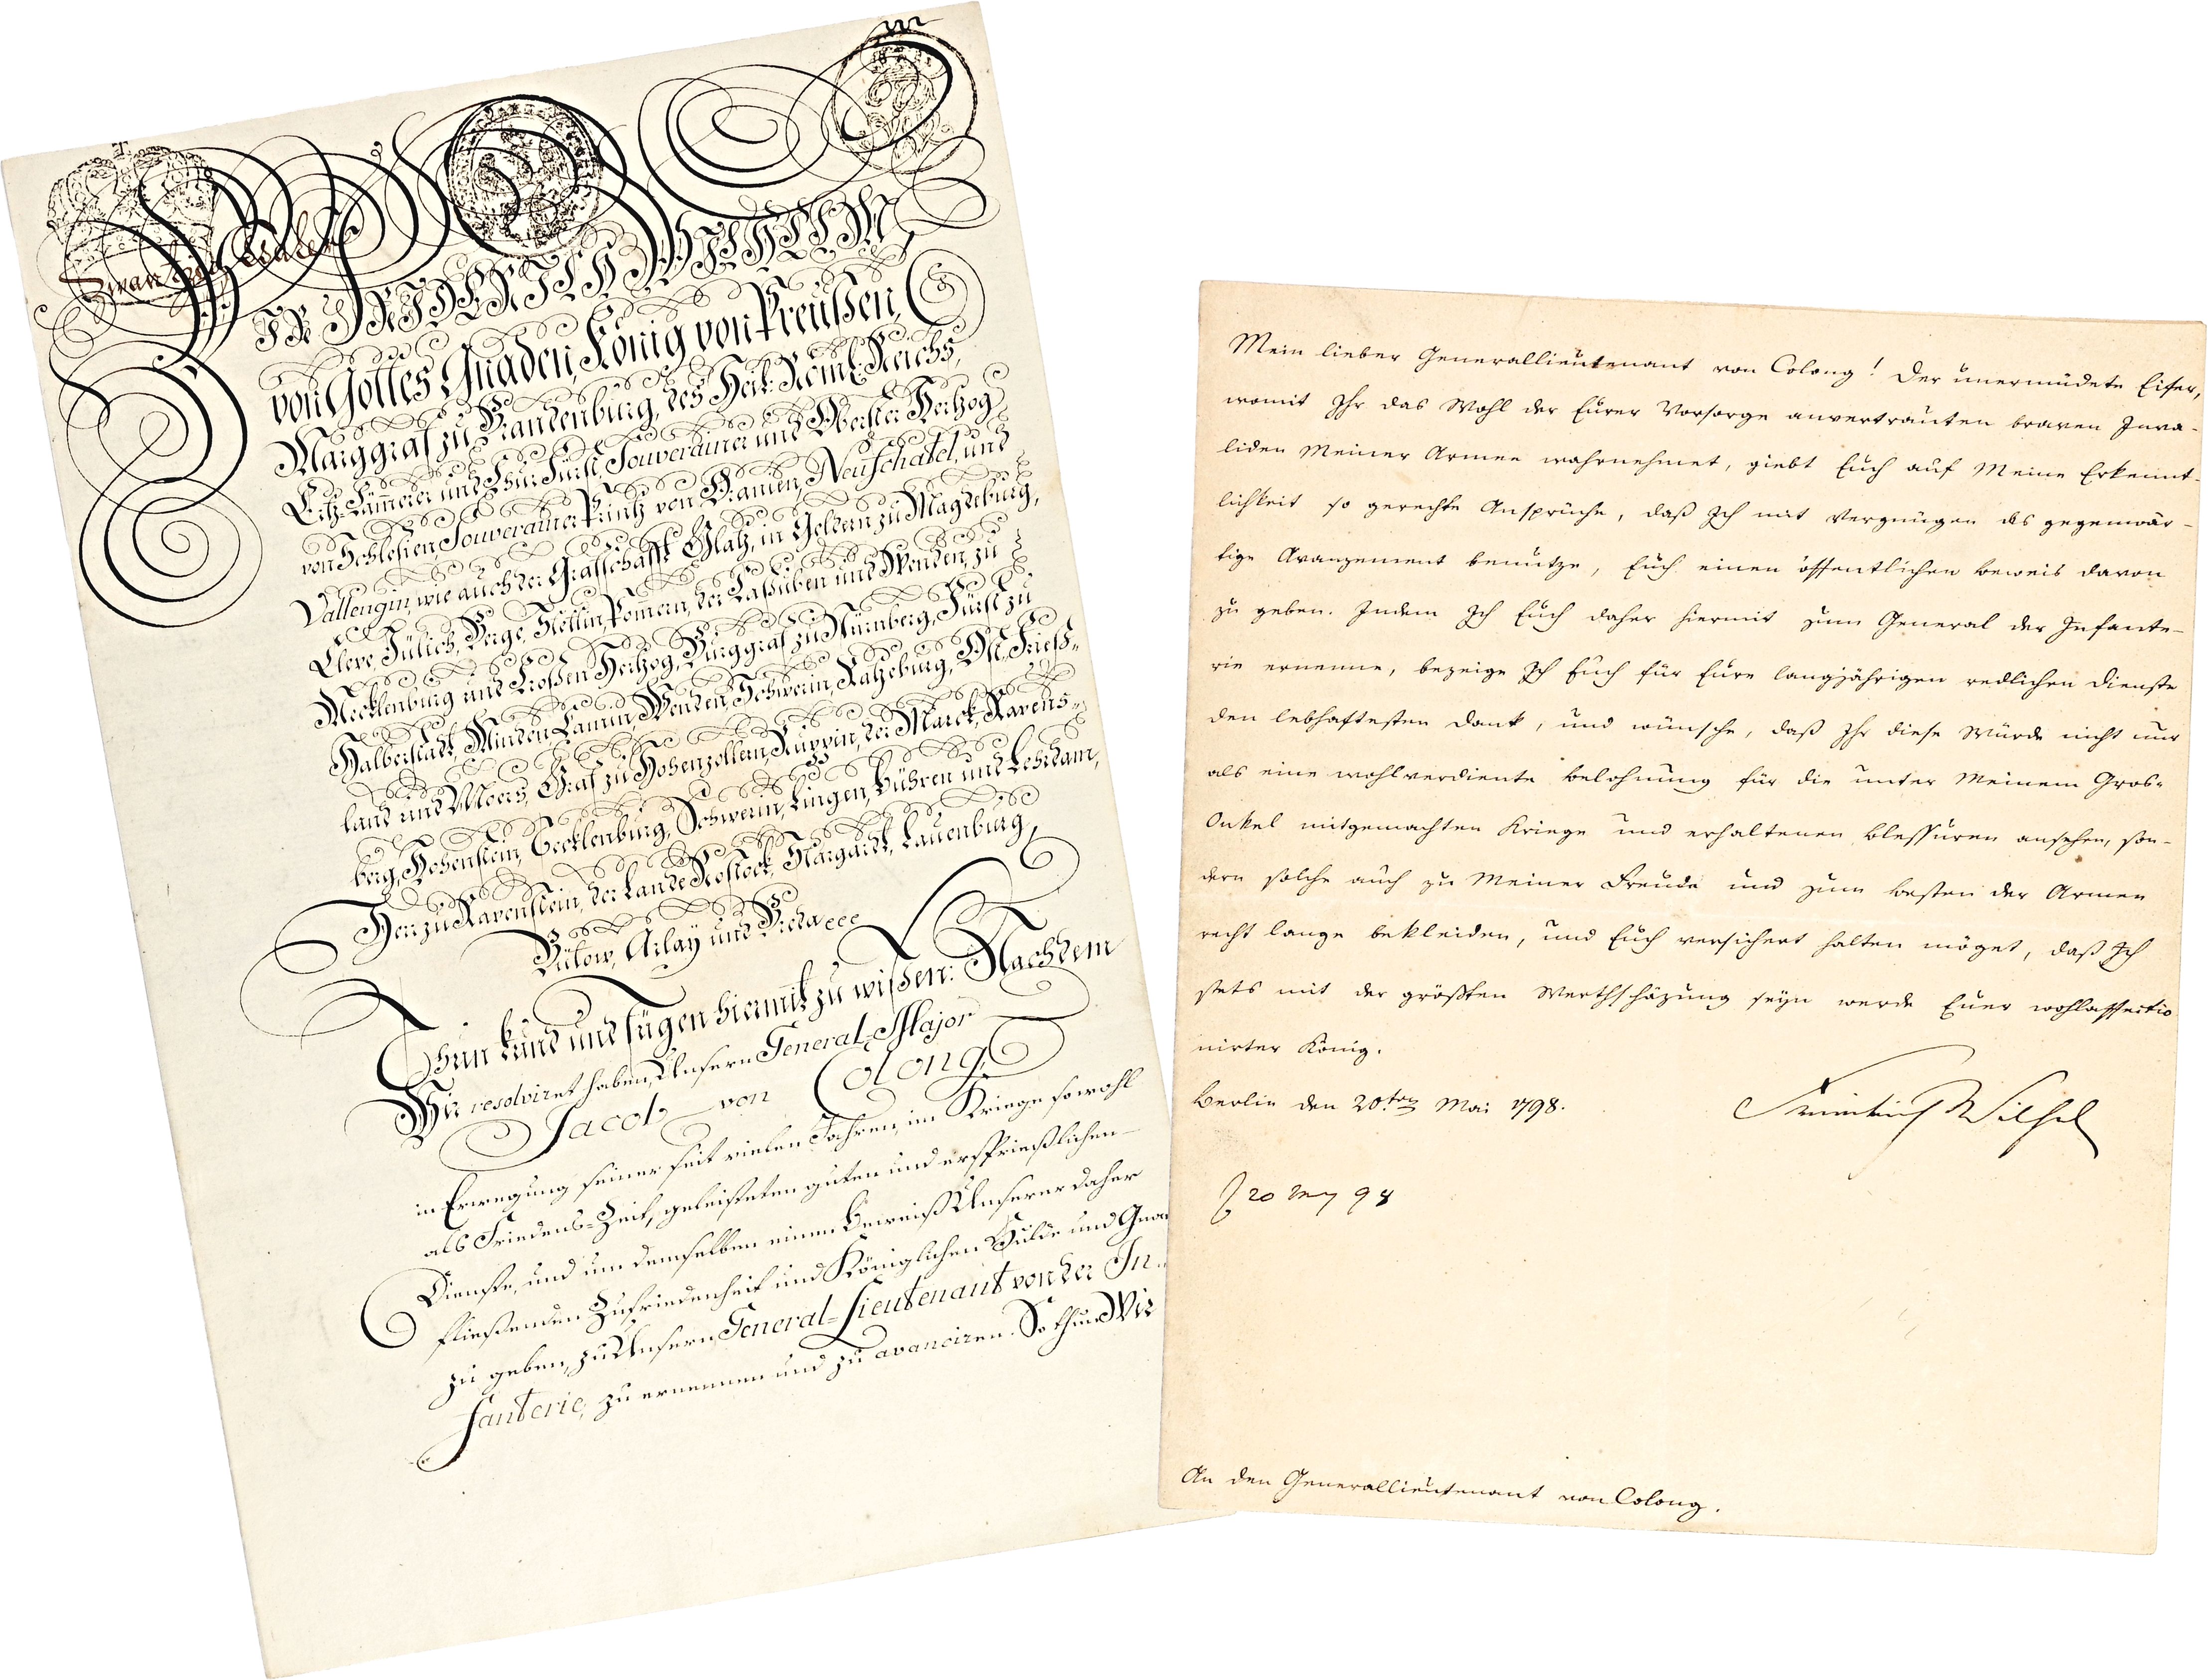 Zwantzig Thaler
WIR FRIDERICH WILHELM,
von Gottes Gnaden, König von Preußen,
Marggraf zu Brandenburg, des Heil: Röml: Reichs,
Ertz-Cämmerer und Chur Fürst, Souverainer und Oberster Hertzog
von Schlesien, Souverainer Printz von Oranien, Neufchatel, und
Vallengin, wie auch der Graffschafft Glatz, in Geldern zu Magdeburg,
Cleve, Jülich, Berge, Stettin, Pomern, der Caßuben und Wenden, zu
Mecklenburg und Croßen Hertzog, Burggraf zu Nürnberg, Fürst zu
Halberstadt, Minden, Camin, Wenden, Schwerin, Ratzeburg, Ost-Frieß-
land und Moers, Graf zu Hohenzollern, Ruppin, der Marck, Ravens-
berg, Hohenstein, Tecklenburg, Schwerin, Lingen, Bühren und Lehrdam,
Herr zu Ravenstein, der Lande Rostock, Stargardt, Lauenburg,
Bütow, Arlay und Breda ece
Thun kund und fügen hiermit zu wißen: Nachdem
Wir resolviret haben, Unsern General-Major
Jacob von Colong,
in Erwegung seiner seit vielen Jahren, im Kriege sowohl
als Friedens-Zeit, geleisteten guten und ersprießlichen
Dienste, und um demselben einen Beweiß Unserer daher
fließenden Zufriedenheit und Königlichen Hulde und
zu geben, zu Unsern General-Lieutenant von der In-
fanterie, zu ernennen und zu avanciren. So thun Wir
Mein lieber Generallieutenant von Colong! Der unermüdete Eifer,
womit Ihr das Wohl der Eurer Vorsorge anvertrauten braven Inva-
liden Meiner Armee wahrnehmet, giebt Euch auf Meine Erkennt-
lichkeit so gerechte Ansprüche, daß Ich mit Vergnügen das gegenwär-
tige Avangement benutze, Euch einen öffentlichen Beweis davon
zu geben. Indem Ich Euch daher hiermit zum General der Infante-
rie ernenne, bezeige Ich Euch für Eure langjährigen redlichen Dienste
den lebhaftesten Dank, und wünsche, daß Ihr diese Würde nicht nur
als eine wohlverdiente Belohnung für die unter Meinem Gros-
Onkel mitgemachten Kriege und erhaltenen Blessuren ansehen, son-
dern solche auch zu Meiner Freude und zum Besten der Armee
recht lange bekleiden, und Euch versichert halten möget, daß Ich
stets mit der größten Werthschäzung seyn werde Euer wohlaffectio
nirter König.
Berlin den 20ten Mai 1798.
Friedrich Wilhelm
20 May 98
An den Generallieutenant von Colong.